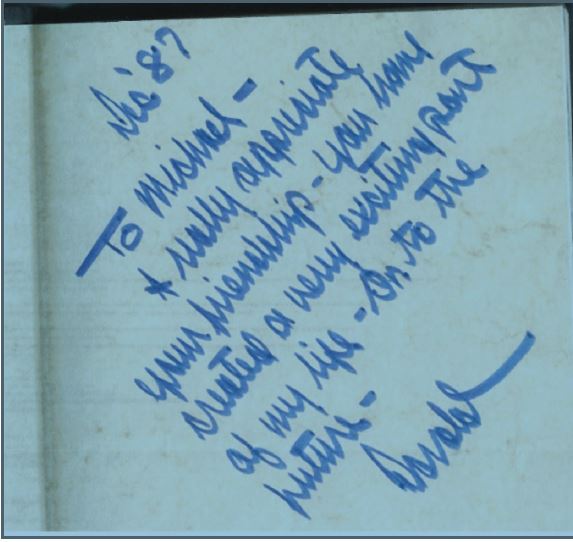 Dec '87
To Michael -
I really appreciate
your friendship - You have
created a very exciting part
of my life - On to the
future -
Donald